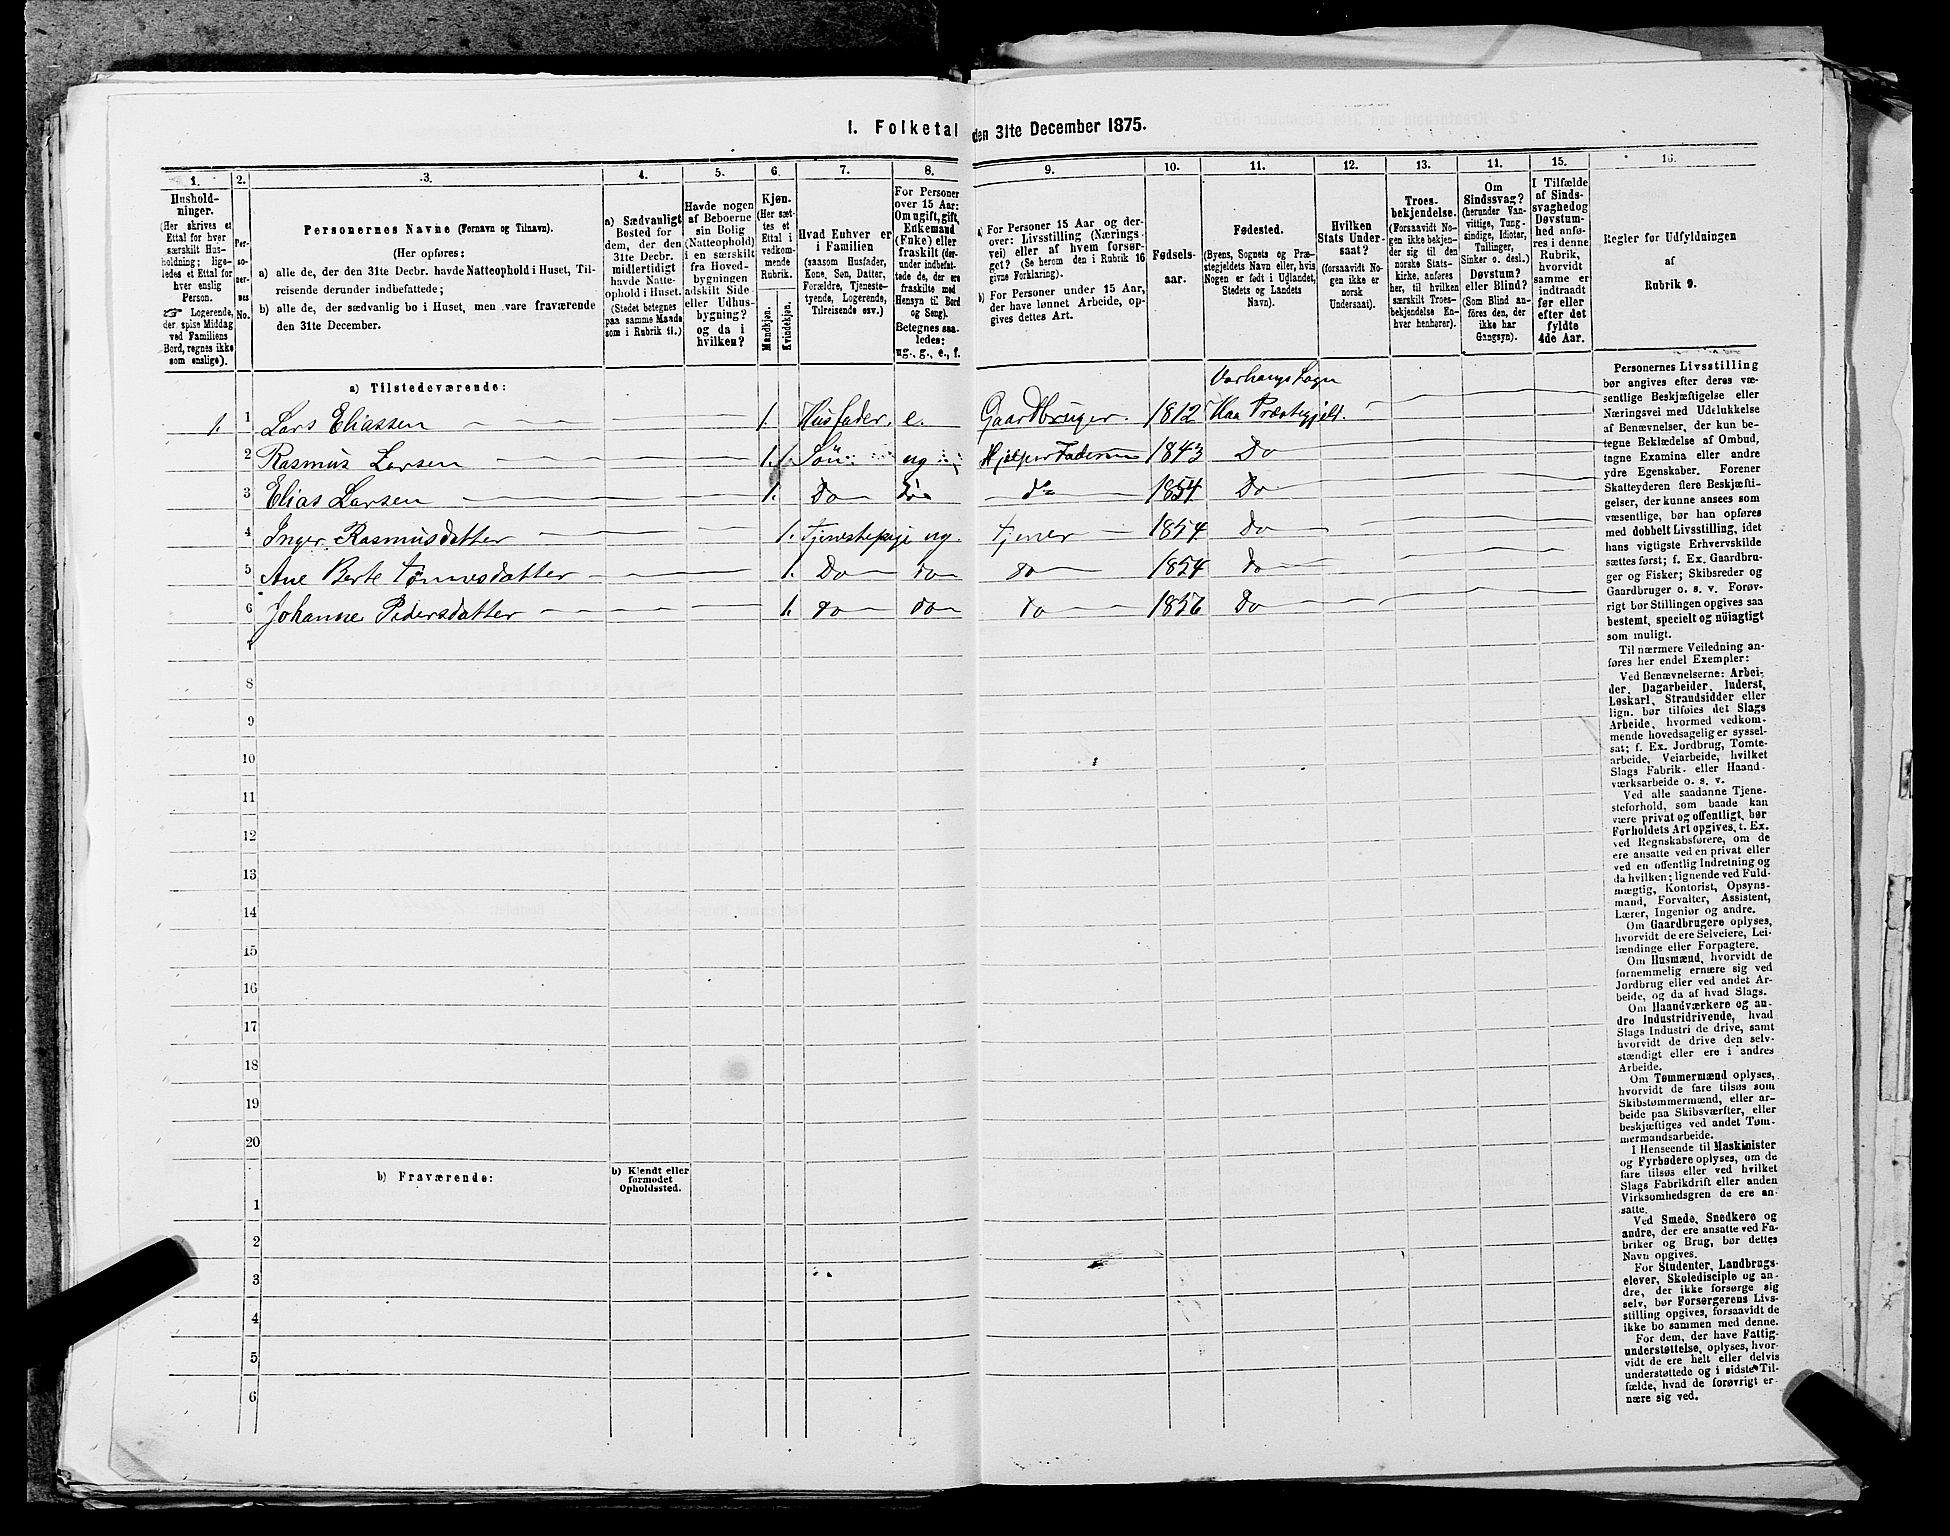 I. Folketal den 31te December 1875.
1. 2. 3. 4. 5. 6. 7. 8. 9. 10. 11. 12. 13. 11. 15. 16.
Hushold-
ninger.
(Her skrives et
Ettal for hver
særskilt Hus-
holdning; lige-
ledes et Ettal for
hver enslig
Person.
☞ Logerende,
der spise Middag
ved Familiens
Bord, regnes ikke
som enslige).
Per-
so-
ner-
nes
No.
Personernes Navne (Fornavn og Tilnavn).
(Her opføres:
a) alle de, der den 31te Decbr. havde Natteophold i Huset, Til-
reisende derunder indbefattede;
b) alle de, der sædvanlig bo i Huset, men vare fraværende
den 31te December.
a) Sædvanligt
Bosted for
dem, der den
31te Decbr.
midlertidigt
havde Natte-
ophold i Huset.
(Stedet betegnes
paa samme Maade
som i Rubrik 11.)
Havde nogen
af Beboerne
sin Bolig
(Natteophold)
i en særskilt
fra Hoved-
bygningen
adskilt Side-
eller Udhus-
bygning?
og da i
hvilken?
Kjøn.
(Her sæt-
tes et
Ettal i
vedkom-
mende
Rubrik.
Mandkjøn.
Kvindekjøn.
Hvad Enhver er
i Familien
(saasom Husfader,
Kone, Søn, Datter,
Forældre, Tjeneste-
tyende, Logerende,
Tilreisende osv.)
For Personer
over 15 Aar:
Om ugift, gift,
Enkemand
(Enke) eller
fraskilt (der-
under indbefat-
tede de, der ere
fraskilte med
Hensyn til Bord
og Seng).
Betegnes saa-
ledes:
ug., g., e., f.
a) For Personer 15 Aar og der-
over: Livsstilling (Nærings-
vei) eller af hvem forsør-
get? (Se herom den i Rubrik 16
givne Forklaring).
b) For Personer under 15 Aar,
der have lønnet Arbeide, op-
gives dettes Art.
Fødsels-
aar.
Fødested.
(Byens, Sognets og Præ-
stegjeldets Navn eller, hvis
Nogen er født i Udlandet,
Stedets og Landets
Navn).
Hvilken
Stats Under-
saat?
(forsaavidt No-
gen ikke er
norsk
Undersaat).
Troes-
bekjendelse.
(Forsaavidt No-
gen ikke bekjen-
der sig til den
norske Stats-
kirke, anføres
her, til hvilken
særskilt Troes-
bekjendelse En-
hver henhører).
Om
Sindssvag?
(herunder Van-
vittige, Tung-
sindige, Idioter,
Tullinger,
Sinker o. desl.)
Døvstum?
eller Blind?
(Som Blind an-
føres den, der
ikke har
Gangsyn).
I Tilfælde
af Sinds-
svaghed og
Døvstum-
hed anfø-
res i denne
Rubrik,
hvorvidt
samme er
indtraadt
før eller
efter det
fyldte
4de Aar.
Regler for Udfyldningen
af
Rubrik 9.
a) Tilstedeværende:
Varhaugs Sogn
1. 1 Lars Eliassen 1. Husfader. e. Gaardbruger. 1812 Haa Præstegjeld.
2 Rasmus Larsen 1. 1. Søn ug Hjelper Faderen 1843 Do
3 Elias Larsen 1. Do Do do 1854 Do
4 Inger Rasmusdatter 1. Tjenestepige ug. Tjener 1854 Do
5 Ane Berte Tønnesdatter 1. Do Do do 1854 do
6 Johanne Pedersdatter 1. do do Do 1856 Do
7
8
9
10
11
12
13
14
15
16
17
18
19
20
b) Fraværende:
b) Kjendt eller
formodet
Opholdssted.
1
2
3
4
5
6
Personernes Livsstilling
bør angives efter deres væ-
sentlige Beskjæftigelse eller
Næringsvei med Udelukkelse
af Benævnelser, der kun be-
tegne Beklædelse af Ombud,
tagne Examina eller andre
ydre Egenskaber. Forener
Skatteyderen flere Beskjæfti-
gelser, der kunne ansees som
væsentlige, bør han opføres
med dobbelt Livsstilling, idet
hans vigtigste Erhvervskilde
sættes først; f. Ex. Gaardbru-
ger og Fisker; Skibsreder og
Gaardbruger o. s. v. Forøv-
rigt bør Stillingen opgives saa
bestemt, specielt og nøiagtigt
som muligt.
Til nærmere Veiledning an-
føres her endel Exempler:
Ved Benævnelserne: Arbei-
der, Dagarbeider, Inderst,
Løskarl, Strandsidder eller
lign. bør tilføies det Slags
Arbeide, hvormed vedkom-
mende hovedsagelig er syssel-
sat; f. Ex. Jordbrug, Tomte-
arbeide, Veiarbeide, hvilket
Slags Fabrik- eller Haand-
værksarbeide o. s. v.
Ved alle saadanne Tjene-
steforhold, som baade kan
være privat og offentligt, bør
Forholdets Art opgives, t. Ex.
ved Regnskabsførere, om de
ere ansatte ved en privat eller
ved en offentlig Indretning og
da hvilken; lignende ved Fuld-
mægtig, Kontorist, Opsyns-
mand, Forvalter, Assistent,
Lærer, Ingeniør og andre.
Om Gaardbrugere oplyses,
hvorvidt de ere Selveiere, Lei-
lændinge eller Forpagtere.
Om Husmænd, hvorvidt de
fornemmelig ernære sig ved
Jordbrug eller ved andet Ar-
beide, og da af hvad Slags.
Om Haandværkere og an-
dre Industridrivende, hvad
Slags Industri de drive, samt
hvorvidt de drive den selv-
stændigt eller ere i andres
Arbeide.
Om Tømmermænd oplyses,
hvorvidt de fare tilsøs som
Skibstømmermænd, eller ar-
beide paa Skibsværfter, eller
beskjæftiges ved andet Tøm-
mermandsarbeide.
I Henseende til Maskinister
og Fyrbødere oplyses, om de
fare tilsøs eller ved hvilket
Slags Fabrikdrift eller anden
Virksomhedsgren de ere an-
satte.
Ved Smede, Snedkere og
andre, der ere ansatte ved Fa-
briker og Brug, bør dettes
Navn opgives.
For Studenter, Landbrugs-
elever, Skoledisciple og an-
dre, der ikke forsørge sig
selv, bør Forsørgerens Livs-
stilling opgives, forsaavidt de
ikke bo sammen med denne.
For dem, der have Fattig-
understøttelse, oplyses, hvor-
vidt de ere helt eller delvis
understøttede og i sidste Til-
fælde, hvad de forøvrigt er-
nære sig ved.